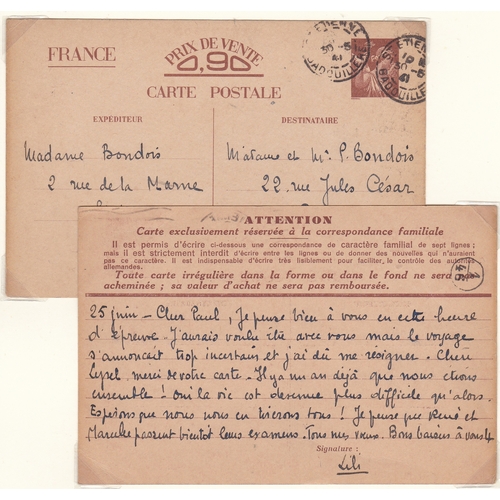 FRANCE
PRIX DE VENTE
0,90
CARTE POSTALE
EXPÉDITEUR
DESTINATAIRE
Madame Bondois
2 rue de la Marne
Madame et Mr P. Bondois
22 rue Jules César
ATTENTION
Carte exclusivement réservée à la correspondance familiale
Il est permis d'écrire ci-dessous une correspondance de caractère familial de sept lignes;
mais il est strictement interdit d'écrire entre les lignes ou de donner des nouvelles qui n'auraient
pas ce caractère. Il est indispensable d'écrire très lisiblement pour faciliter le contrôle des
allemandes.
Toute carte irrégulière dans la forme ou dans le fond ne sera
acheminée; sa valeur d'achat ne sera pas remboursée.
A
46
25 juin - Cher Paul, Je pense bien à vous en cette heure
d'épreuve. J'aurais voulu être avec vous mais le voyage
s'annonçait trop incertain et j'ai dû me résigner. Chère
merci de votre carte. Il y a un an déjà que nous étions
ensemble! Oui la vie est devenue plus difficile qu'alors.
Espérons que nous nous en tirerons tous! Je pense que René et
passent bientôt leurs examens. Tous mes vœux. Bons baisers à vous 4
Signature :
Lili